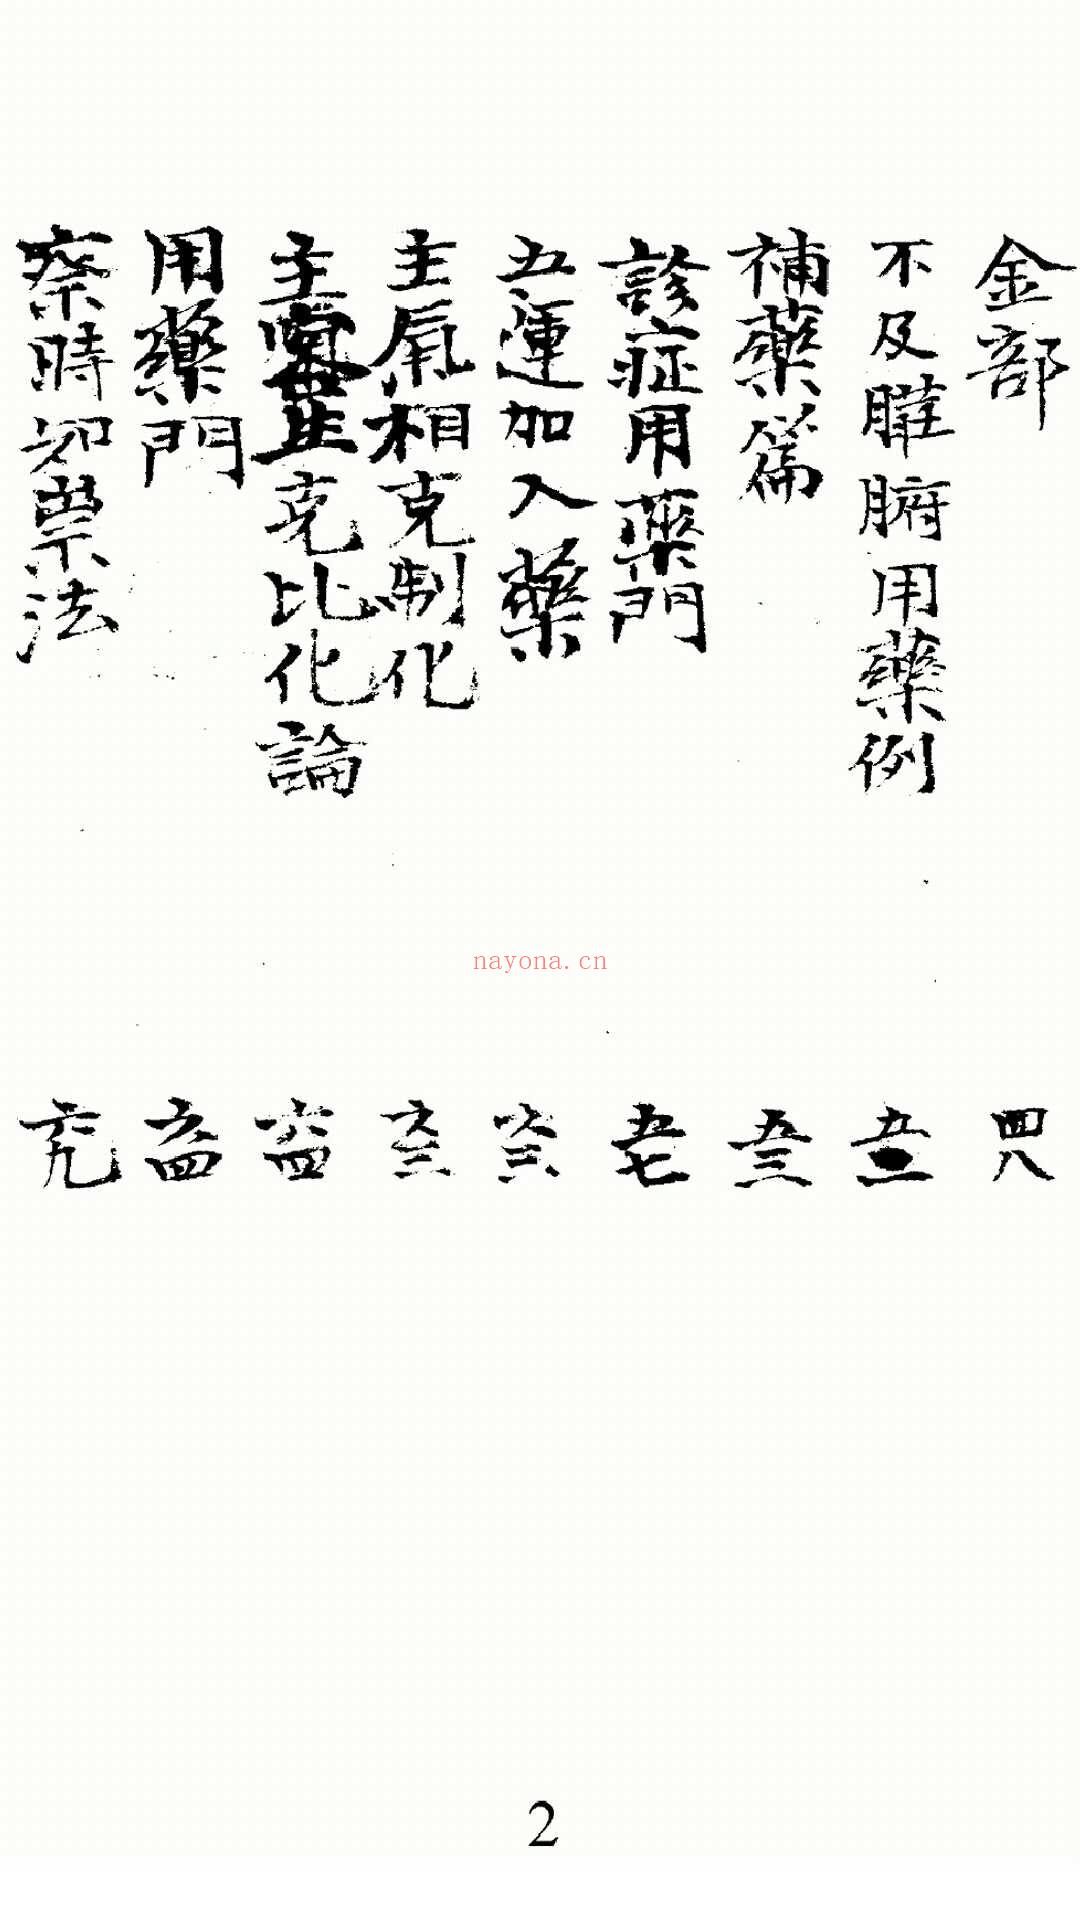 金部 四八
不及臟腑用藥例
補藥篇 五三
診症用藥門 五七
五運加入藥 六三
主氣相克制化 六三
克比化論 六四
用藥門 六四
察時知票法 六九
nayona.cn
2